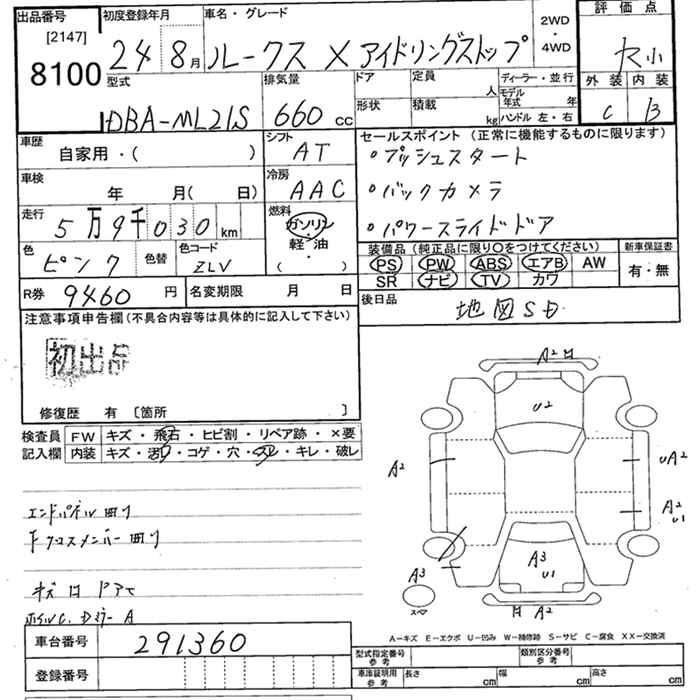 出品番号 初度登録年月 車名・グレード 2WD・4WD 評価点
[2147]
8100 24 8月 ルークス X アイドリングストップ
外装 内装
C B
型式 排気量 ドア 定員 人 ディーラー・並行
形状 積載 kg モデル年式 年
ハンドル 左・右
DBA-ML21S 660 cc
車歴 自家用・( ) シフト AT
セールスポイント (正常に機能するものに限ります)
・プッシュスタート
・バックカメラ
・パワースライドドア
車検 年 月(日) 冷房 AAC
走行 5万9千030 km 燃料 ガソリン・軽油 ( ・ )
色 ピンク 色替 色コード ZLV
装備品 (純正品に限り○をつけてください) 新車保証書
PS PW ABS エアB AW 有・無
SR ナビ TV カワ
R券 9460 円 名変期限 月 日
後日品 地図SD
注意事項申告欄(不具合内容等は具体的に記入して下さい)
初出品
修復歴 有 〔箇所 〕
検査員 FW キズ・飛石・ヒビ割・リペア跡・×要
記入欄 内装 キズ・汚れ・コゲ・穴・スレ・キレ・破レ
エンドパネル凹リ
キズ 凹 ドアモ
A2
U2
A2
UA2
A2
U1
A3
U1
A3
A2
A-キズ E-エクボ U-凹み W-補修跡 S-サビ C-腐食 XX-交換済
車台番号 291360
登録番号
型式指定番号 参考 類別区分番号 参考
車庫証明用 参考 長さ cm 幅 cm 高さ cm